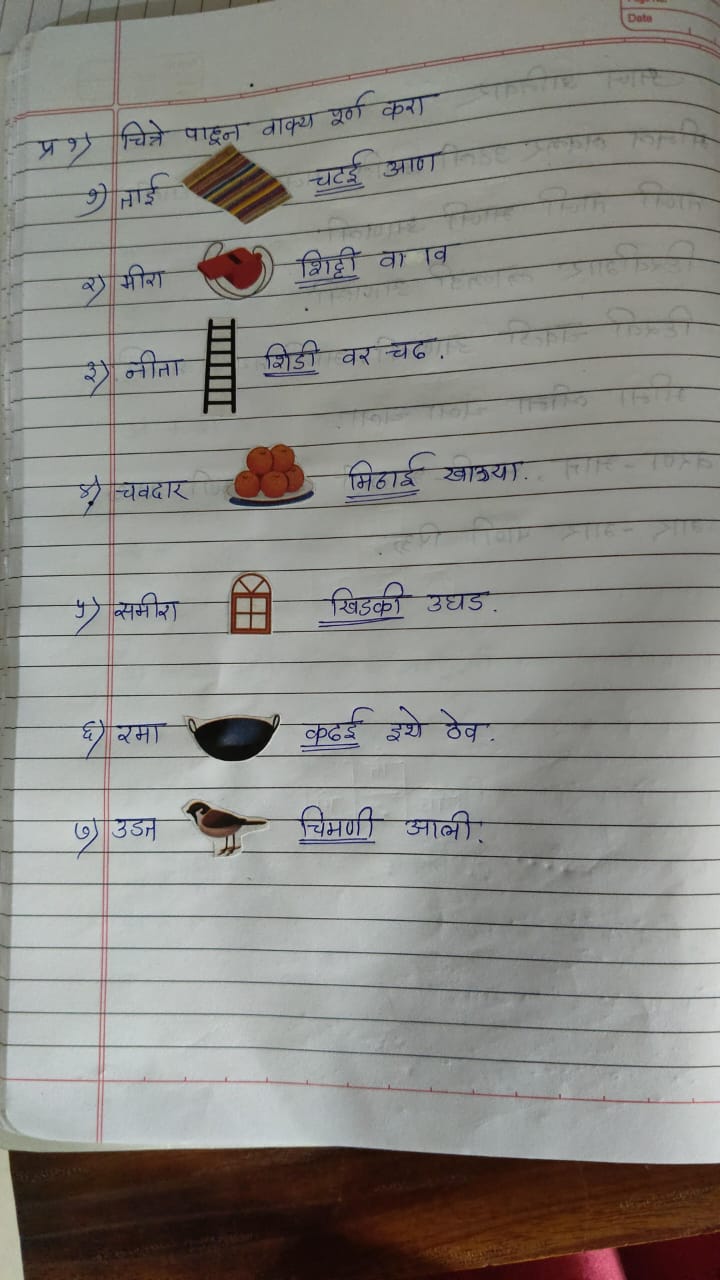 Date
प्र १) चित्रे पाहून वाक्य पूर्ण करा
१) ताई चटई आण
२) मीरा शिट्टी वाजव
३) नीता शिडी वर चढ.
४) चवदार मिठाई खाऊया.
५) समीरा खिडकी उघड.
६) रमा कढई इथे ठेव.
७) उडत चिमणी आली.